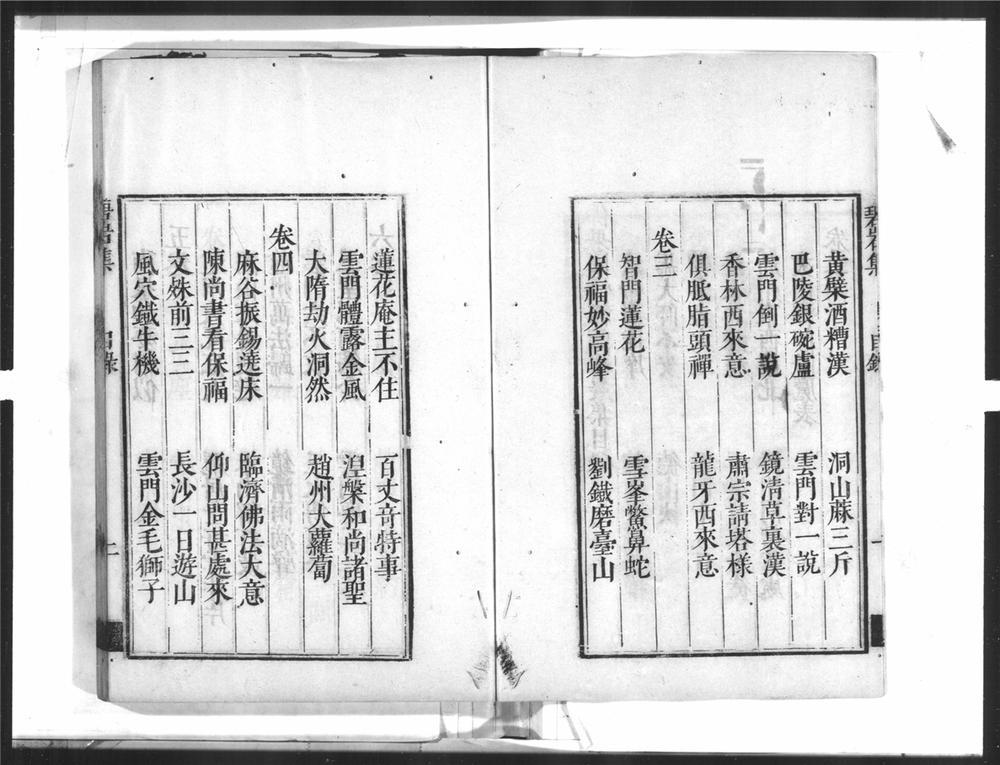 黃檗酒糟漢 洞山蔴三斤
巴陵銀碗盧 雲門對一說
雲門倒一說 鏡清草裏漢
香林西來意 肅宗請塔樣
俱胝脂頭禪 龍牙西來意
卷三
智門蓮花 雪峯鱉鼻蛇
保福妙高峰 劉鐵磨臺山
蓮花庵主不住 百丈竒特事
雲門體露金風 湼槃和尚諸聖
大隋劫火洞然 趙州大蘿蔔
卷四
麻谷振錫遶床 臨濟佛法大意
陳尚書看保福 仰山問甚處來
文殊前三三 長沙一日遊山
風穴鐵牛機 雲門金毛獅子
二